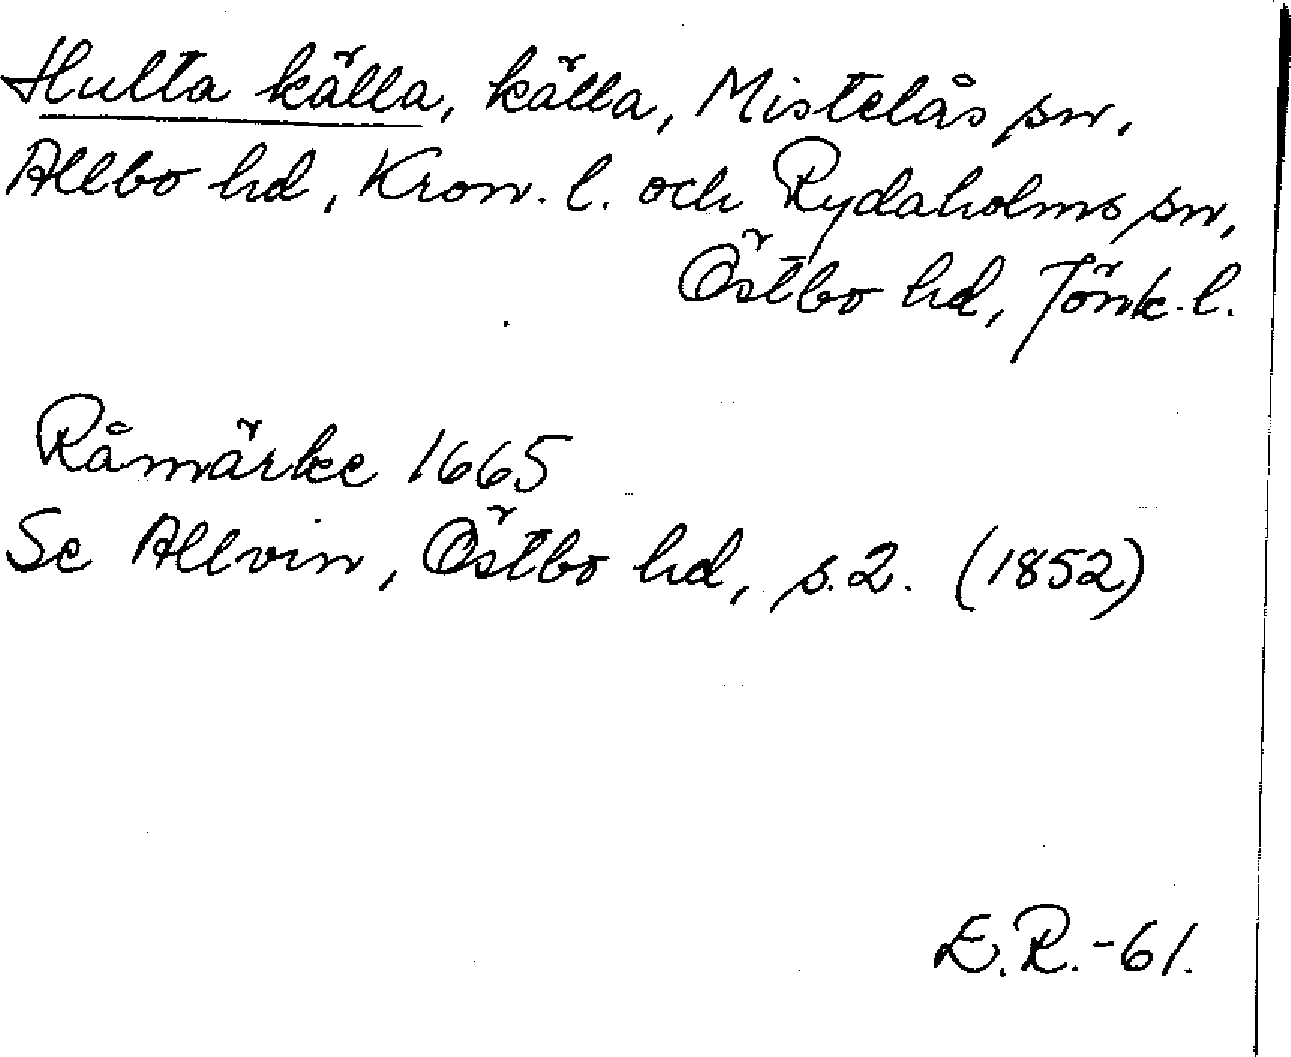 Hulta källa, källa, Mistelås sn,
Allbo hd, Kron. l. och Rydaholms sn,
Östbo hd, Jönk. l.
Råmärke 1665
Se Allvin, Östbo hd, s. 2. (1852)
E.R.-61.